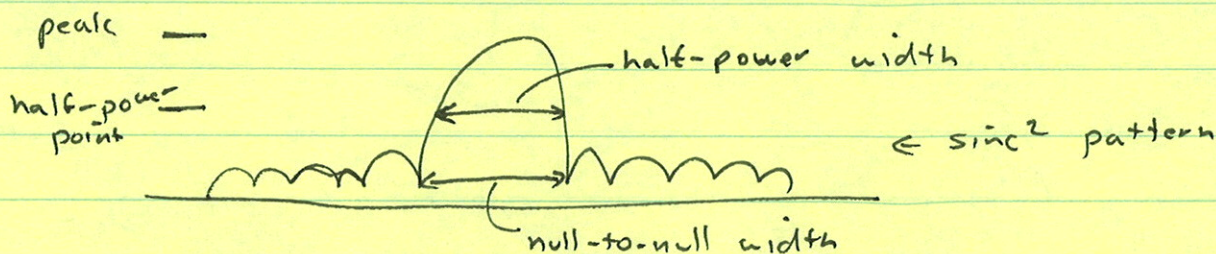 peak
half-power width
half-power
point
← sinc² pattern
null-to-null width